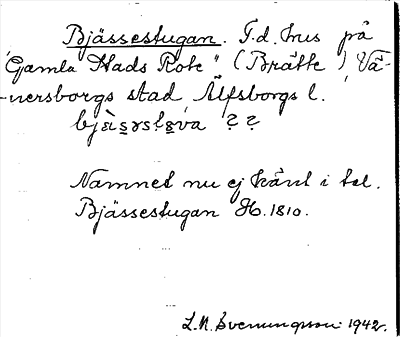 Bjässestugan. F.d. hus på
"Gamla Stads Rote" (Brätte), Vä-
nersborgs stad, Älfsborgs l.
? ?
Namnet nu ej känt i tal.
Bjässestugan H. 1810.
L. N. Svenungsson 1942.